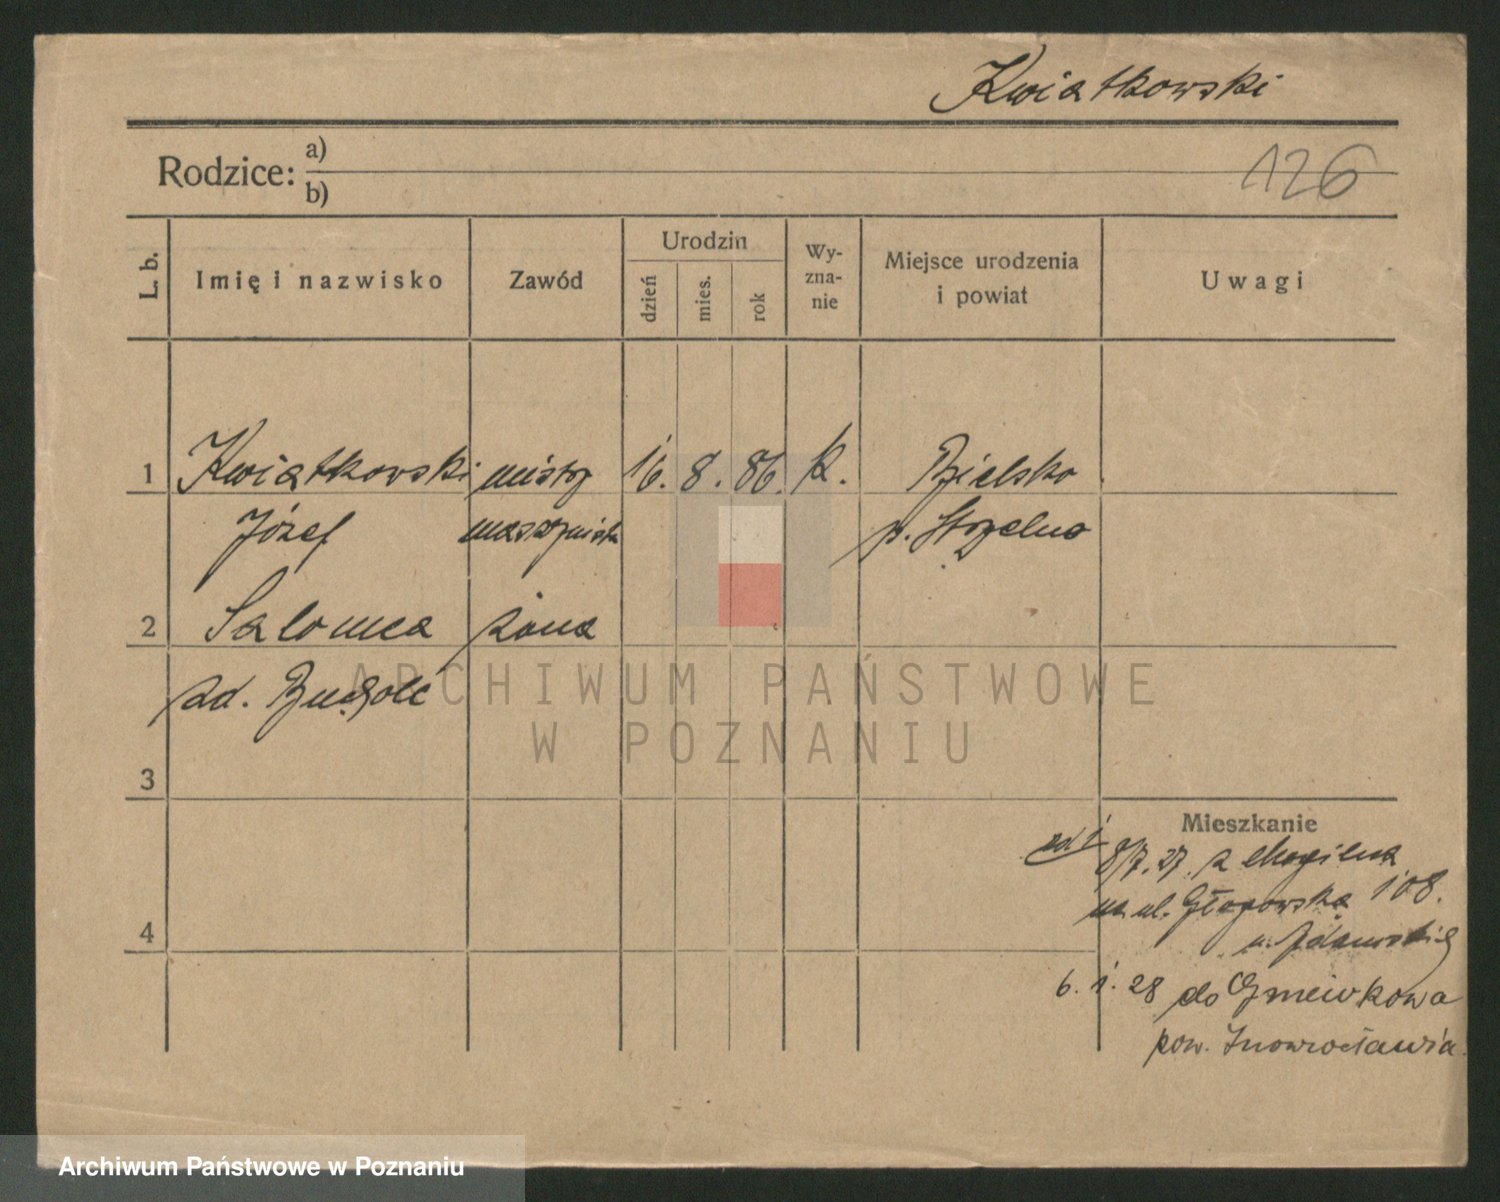 Kwiatkowski
Rodzice: a)
b)
126
L. b.
Imię i nazwisko
Zawód
Urodzin
dzień
mies.
rok
Wy-
zna-
nie
Miejsce urodzenia
i powiat
Uwagi
1 Kwiatkowski mistrz 16. 8. 86. k. Bielsko
Józef maszynista p. Strzelno
2 Salomea żona
zd.
3
4
Mieszkanie
od 1
8/7. 27. z Mogilna
na ul. Głogowska 108.
u.
6. 1. 28 do Gniewkowa
pow. Inowrocławia.
ARCHIWUM PAŃSTWOWE
W POZNANIU
Archiwum Państwowe w Poznaniu